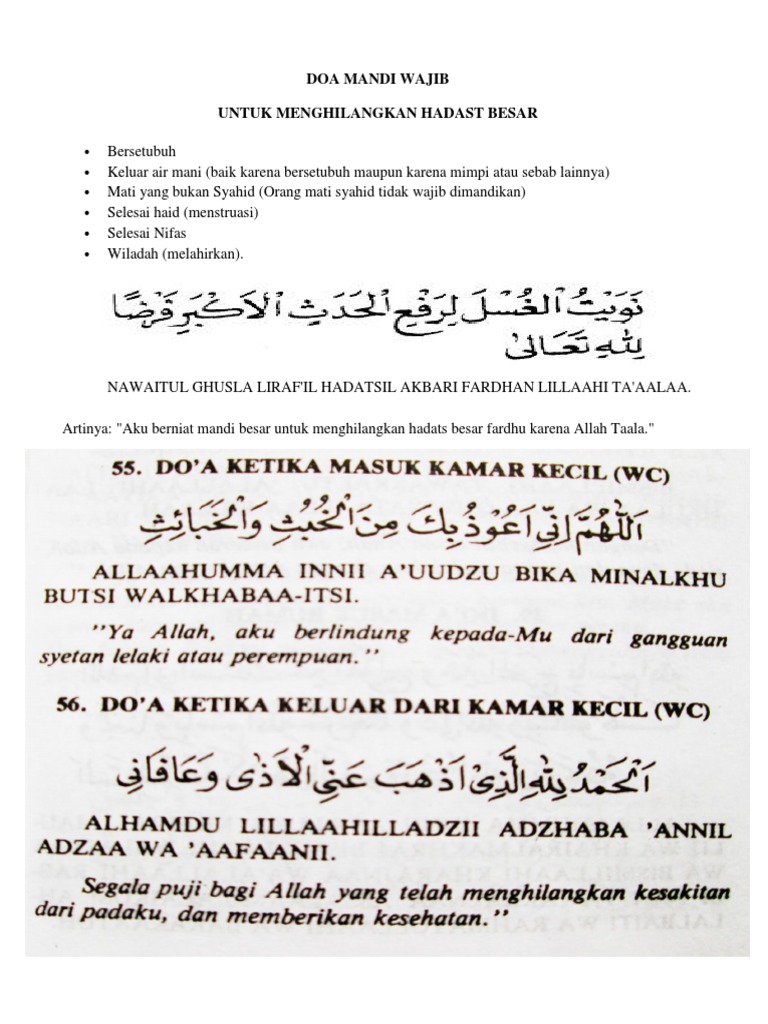 DOA MANDI WAJIB
UNTUK MENGHILANGKAN HADAST BESAR
• Bersetubuh
• Keluar air mani (baik karena bersetubuh maupun karena mimpi atau sebab lainnya)
• Mati yang bukan Syahid (Orang mati syahid tidak wajib dimandikan)
• Selesai haid (menstruasi)
• Selesai Nifas
• Wiladah (melahirkan).
نَوَيْتُ الْغُسْلَ لِرَفْعِ الْحَدَثِ الْاَكْبَرِ فَرْضًا
لِلّٰهِ تَعَالٰى
NAWAITUL GHUSLA LIRAF'IL HADATSIL AKBARI FARDHAN LILLAAHI TA'AALAA.
Artinya: "Aku berniat mandi besar untuk menghilangkan hadats besar fardhu karena Allah Taala."
55. DO'A KETIKA MASUK KAMAR KECIL (WC)
اَللّٰهُمَّ اِنِّيْ اَعُوْذُ بِكَ مِنَ الْخُبُثِ وَالْخَبَائِثِ
ALLAAHUMMA INNII A'UUDZU BIKA MINALKHU
BUTSI WALKHABAA-ITSI.
"Ya Allah, aku berlindung kepada-Mu dari gangguan
syetan lelaki atau perempuan."
56. DO'A KETIKA KELUAR DARI KAMAR KECIL (WC)
اَلْحَمْدُ لِلّٰهِ الَّذِيْ اَذْهَبَ عَنِّي الْاَذٰى وَعَافَانِي
ALHAMDU LILLAAHILLADZII ADZHABA 'ANNIL
ADZAA WA 'AAFAANII.
Segala puji bagi Allah yang telah menghilangkan kesakitan
dari padaku, dan memberikan kesehatan."